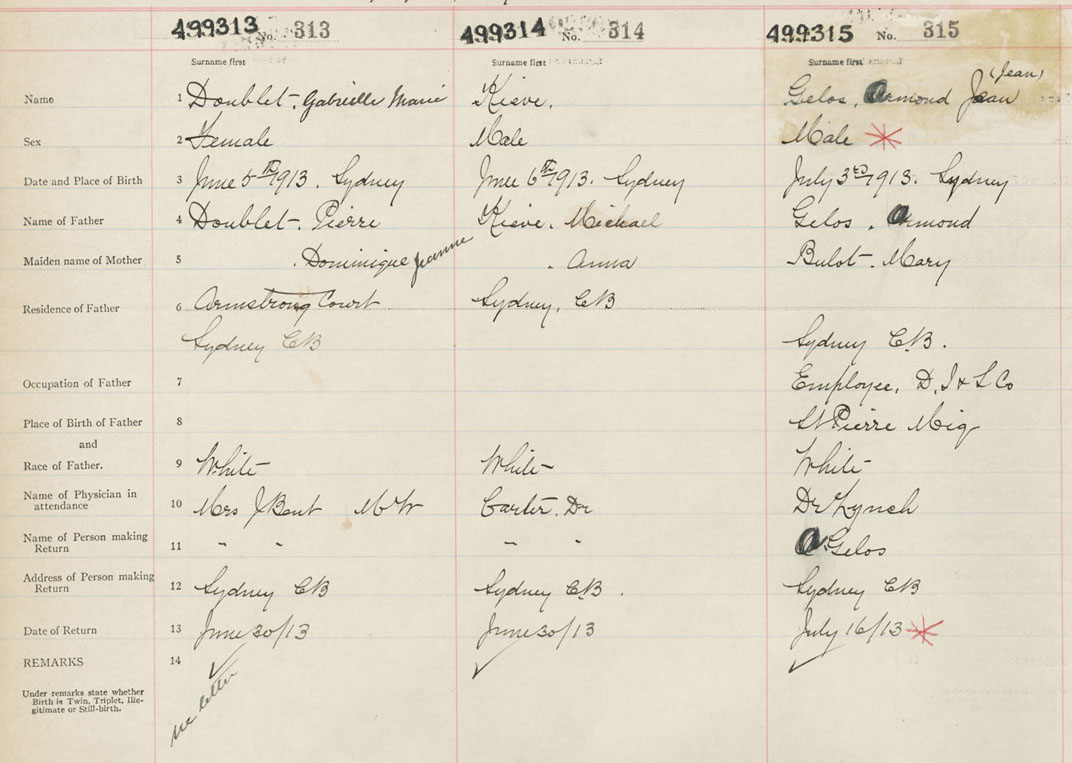 499313 No. 313 499314 No. 314 499315 No. 315
Surname first Surname first Surname first
(Jean)
Name 1 Doublet, Gabrielle Marie Kieve, Gelos, Armond Jean
Sex 2 Female Male Male
Date and Place of Birth 3 June 5th 1913. Sydney June 6th 1913. Sydney July 3rd 1913. Sydney
Name of Father 4 Doublet, Pierre Kieve, Michael Gelos, Armond
Maiden name of Mother 5 Dominique Jeanne Anna Bulot, Mary
Residence of Father 6 Armstrong Court Sydney, CB
Sydney CB Sydney C.B.
Occupation of Father 7 Employee, D. I & S Co
Place of Birth of Father 8 St Pierre Miq
and
Race of Father. 9 White White White
Name of Physician in attendance 10 Mrs J Bent Carter, Dr Dr Lynch
Name of Person making Return 11 " " " " A Gelos
Address of Person making Return 12 Sydney CB Sydney CB. Sydney CB
Date of Return 13 June 30/13 June 30/13 July 16/13
REMARKS 14
Under remarks state whether
Birth is Twin, Triplet, Ille-
gitimate or Still-birth.
letter